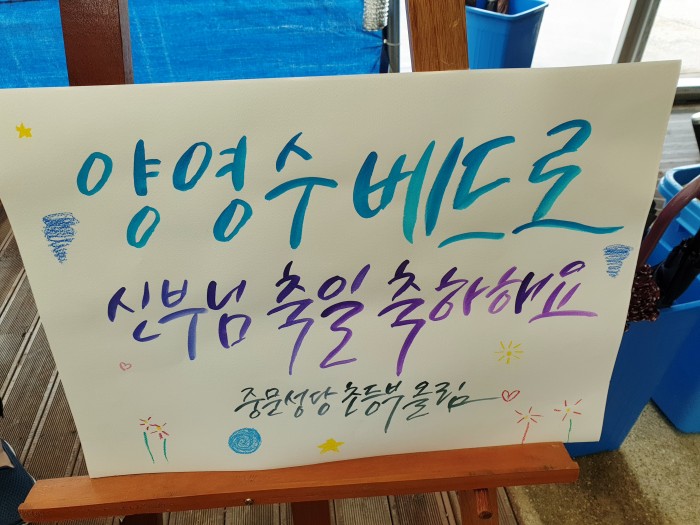 양영수 베드로
신부님 축일 축하해요
중문성당 초등부 올림